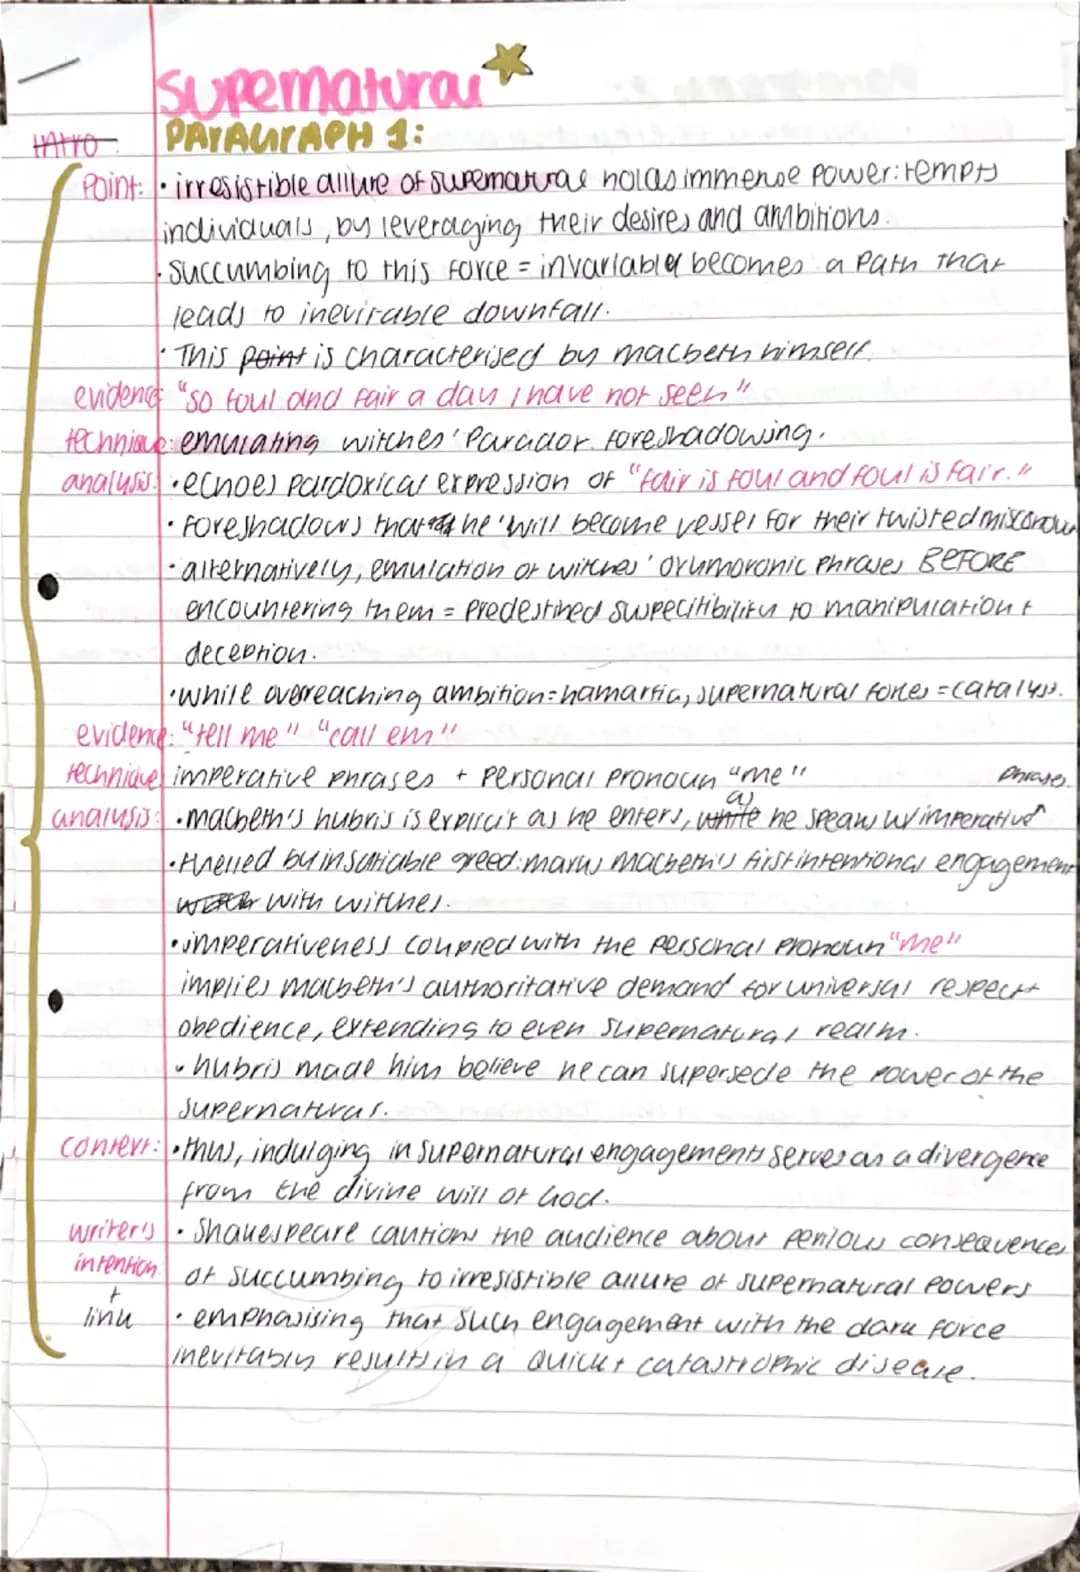 Supernatural
Intro
PARAGRAPH 1:
Point: • irresistible allure of supernatural holds immense power: tempts
individuals, by leveraging their desires and ambitions.
• succumbing to this force = invariably becomes a path that
leads to inevitable downfall.
• This point is characterised by macbeth himself.
evidence: "so foul and fair a day I have not seen"
technique: emulating witches' Parador. foreshadowing.
analysis: • echoes pardoxical expression of "fair is foul and foul is fair."
• foreshadows that he 'will become vessel for their twisted
• alternatively, emulation of witches' oxumoronic phrases BEFORE
encountering them = predestined suspecitibility to manipulation +
deception.
• while overreaching ambition = hamartia, supernatural forces = catalyst.
evidence: "tell me" "call em"
technique: imperative phrases + personal pronoun "me"
phrases.
analysis: • macbeth's hubris is explicit as he enters, while as he speaks w/ imperative
• fuelled by insatiable greed: marks macbeth's first intentional engagement
with witches.
• imperativeness coupled with the personal pronoun "me"
implies macbeth's authoritative demand for universal respect +
obedience, extending to even supernatural realm.
• hubris made him believe he can supersede the power of the
supernatural.
context: • thus, indulging in supernatural engagements serves as a divergence
from the divine will of God.
writer's • Shakespeare cautions the audience about perilous consequences
intention of succumbing to irresistible allure of supernatural powers
+
link • emphasising that such engagement with the dark force
inevitably results in a quick + catastrophic disease.